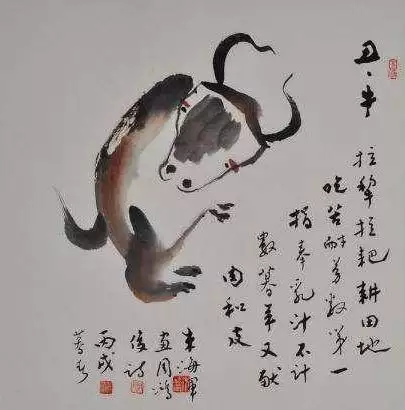 丑、牛
拉犁拉耙耕田地
吃苦耐劳数第一
捐奉乳汁不计
数暮年又献
肉和皮
海軍
画周鴻
俊诗
丙戌
暮春